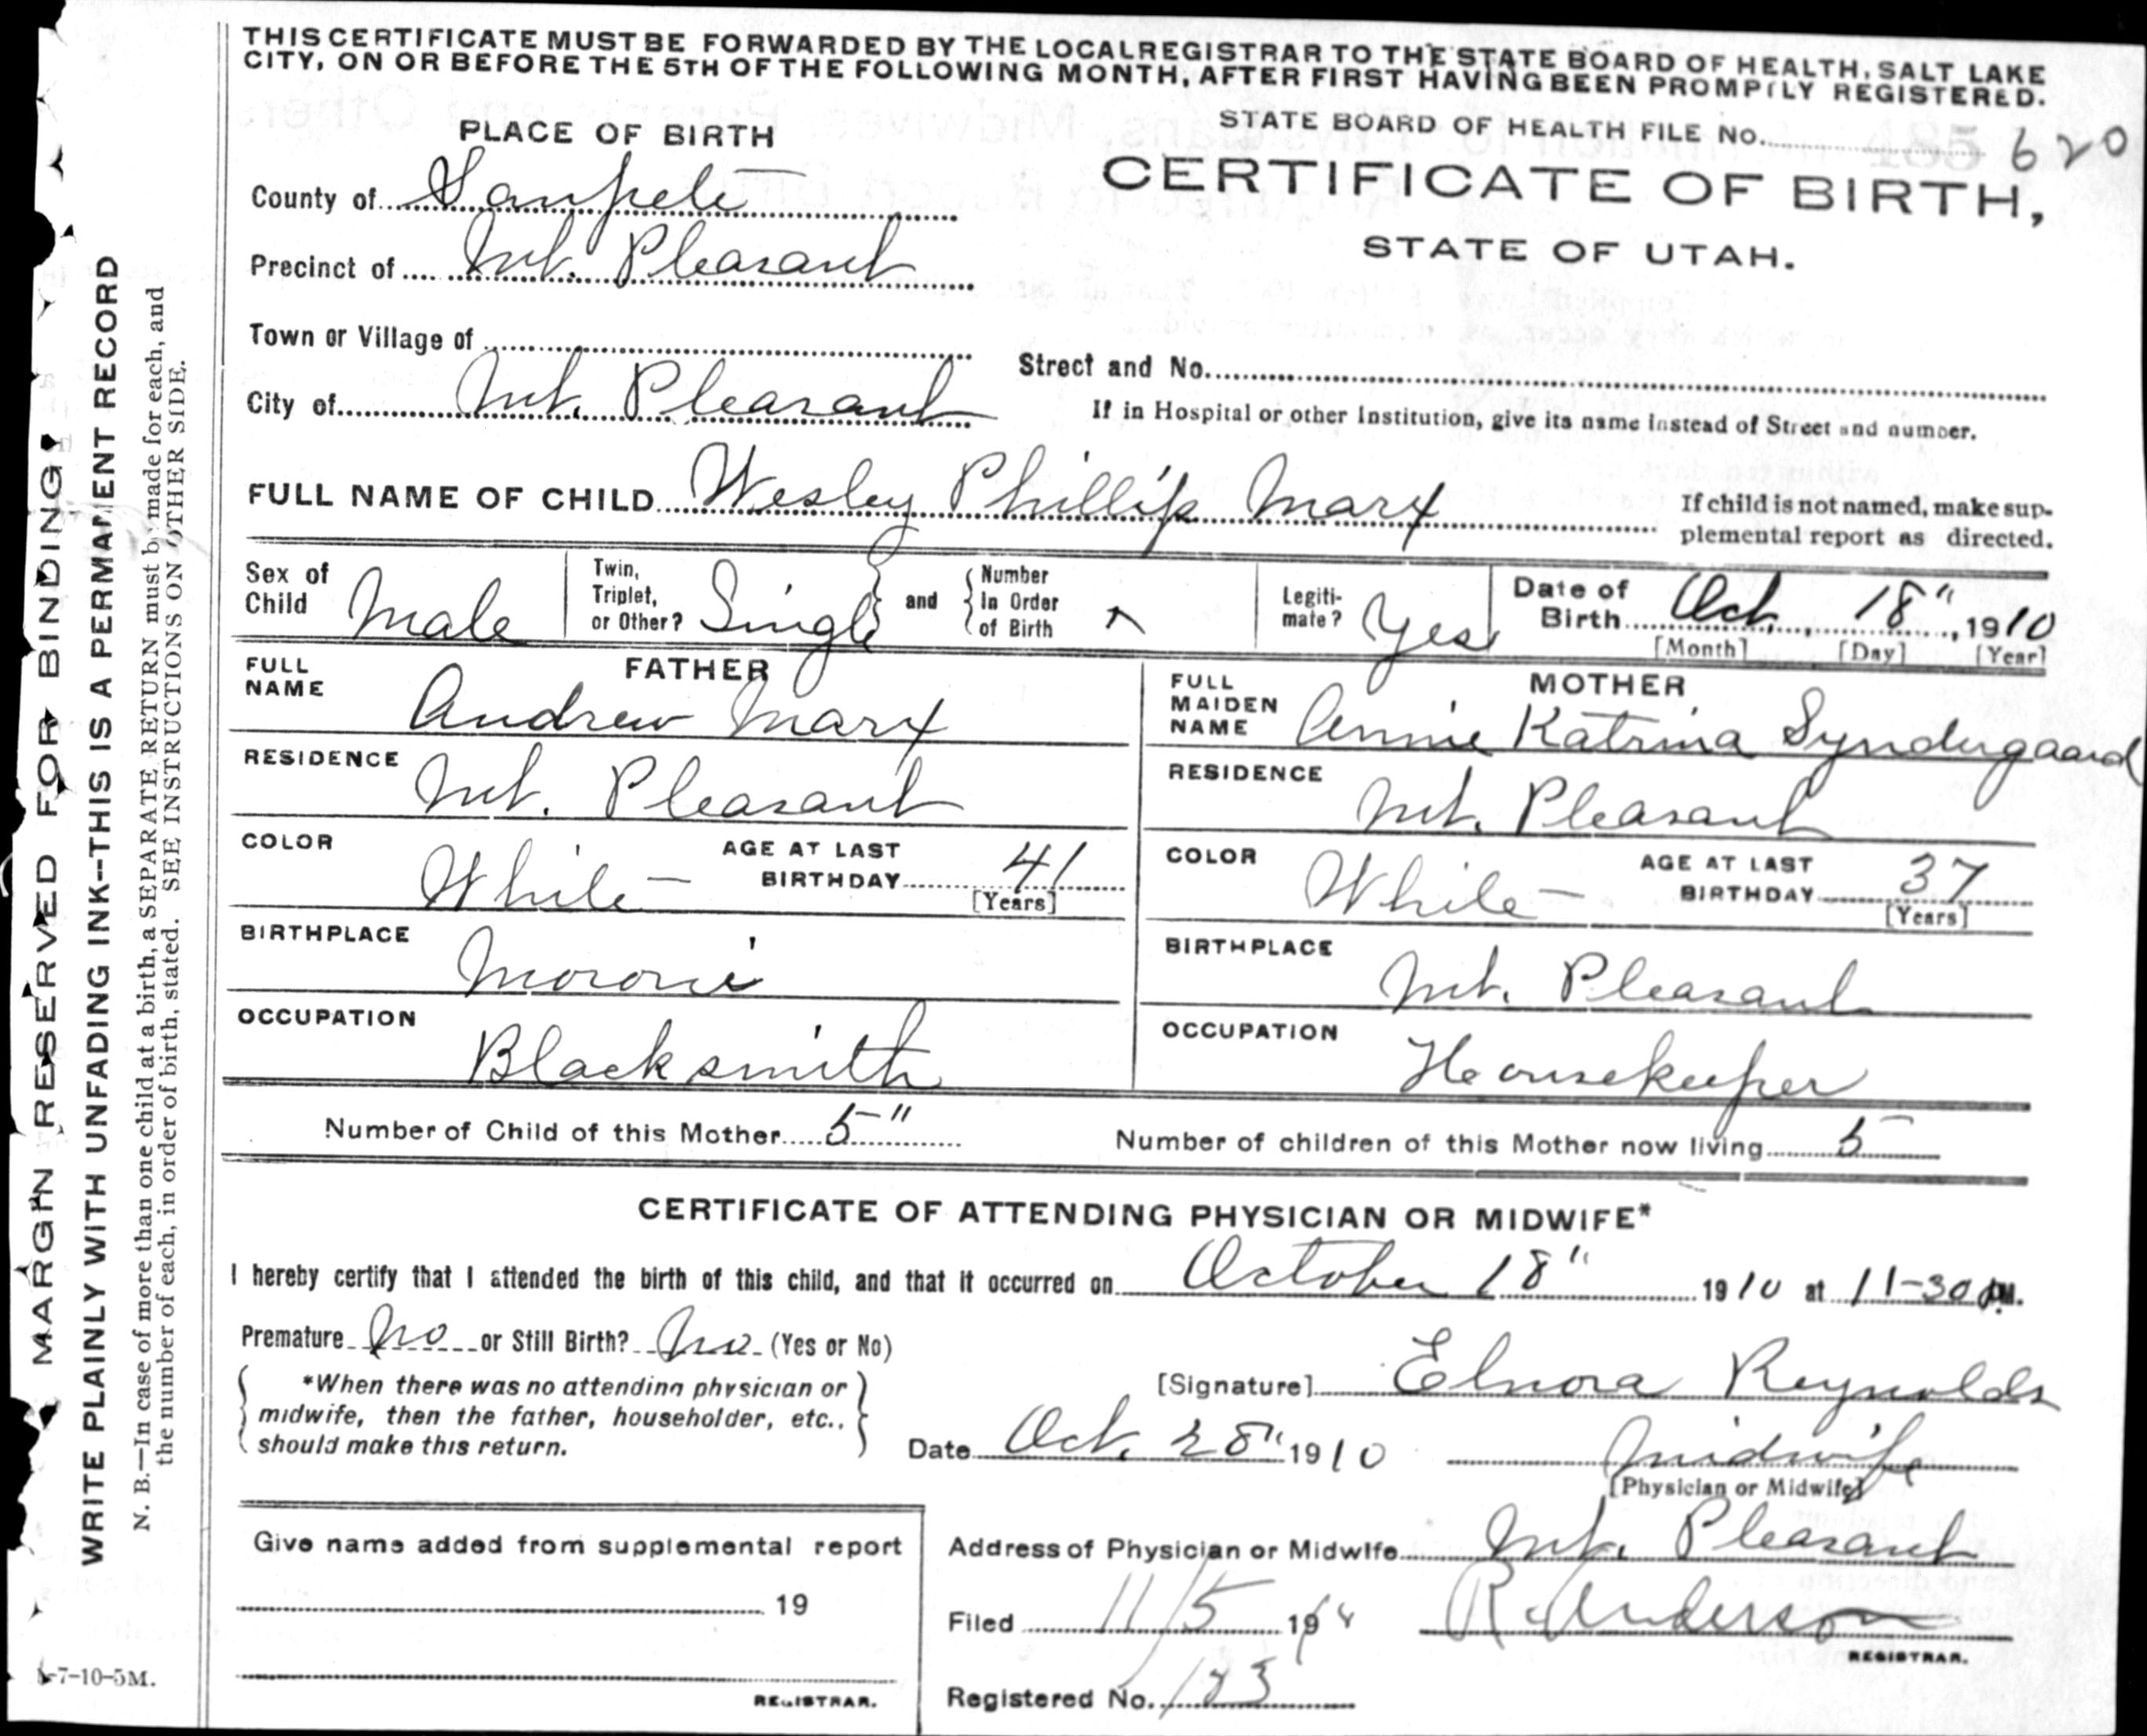 THIS CERTIFICATE MUST BE FORWARDED BY THE LOCAL REGISTRAR TO THE STATE BOARD OF HEALTH, SALT LAKE
CITY, ON OR BEFORE THE 5TH OF THE FOLLOWING MONTH, AFTER FIRST HAVING BEEN PROMPTLY REGISTERED.
PLACE OF BIRTH
STATE BOARD OF HEALTH FILE No. 620
CERTIFICATE OF BIRTH,
STATE OF UTAH.
County of Sanpete
Precinct of Mt. Pleasant
Town or Village of
Street and No.
City of Mt. Pleasant
If in Hospital or other Institution, give its name instead of Street and number.
FULL NAME OF CHILD Wesley Phillip Marx
If child is not named, make sup-
plemental report as directed.
Sex of Child Male
Twin, Triplet, or Other? Single and Number In Order of Birth
Legiti-mate? Yes
Date of Birth Oct. 18", 1910
[Month] [Day] [Year]
FATHER
FULL NAME Andrew Marx
RESIDENCE Mt. Pleasant
COLOR White
AGE AT LAST BIRTHDAY 41
[Years]
BIRTHPLACE Moroni
OCCUPATION Blacksmith
MOTHER
FULL MAIDEN NAME Annie Katrina Syndergaard
RESIDENCE Mt. Pleasant
COLOR White
AGE AT LAST BIRTHDAY 37
[Years]
BIRTHPLACE Mt. Pleasant
OCCUPATION Housekeeper
Number of Child of this Mother 5"
Number of children of this Mother now living 5
CERTIFICATE OF ATTENDING PHYSICIAN OR MIDWIFE*
I hereby certify that I attended the birth of this child, and that it occurred on October 18" 1910 at 11-30 M.
Premature No or Still Birth? No (Yes or No)
*When there was no attending physician or
midwife, then the father, householder, etc.,
should make this return.
[Signature] Elnora Reynolds
Date Oct. 28" 1910
Midwife
[Physician or Midwife]
Give name added from supplemental report
19
REGISTRAR.
Address of Physician or Midwife Mt. Pleasant
Filed 11/5 19
R. Anderson
REGISTRAR.
Registered No. 123
MARGIN RESERVED FOR BINDING
WRITE PLAINLY WITH UNFADING INK--THIS IS A PERMANENT RECORD
N. B.—In case of more than one child at a birth, a SEPARATE RETURN must be made for each, and
the number of each, in order of birth, stated. SEE INSTRUCTIONS ON OTHER SIDE.
-7-10-5M.